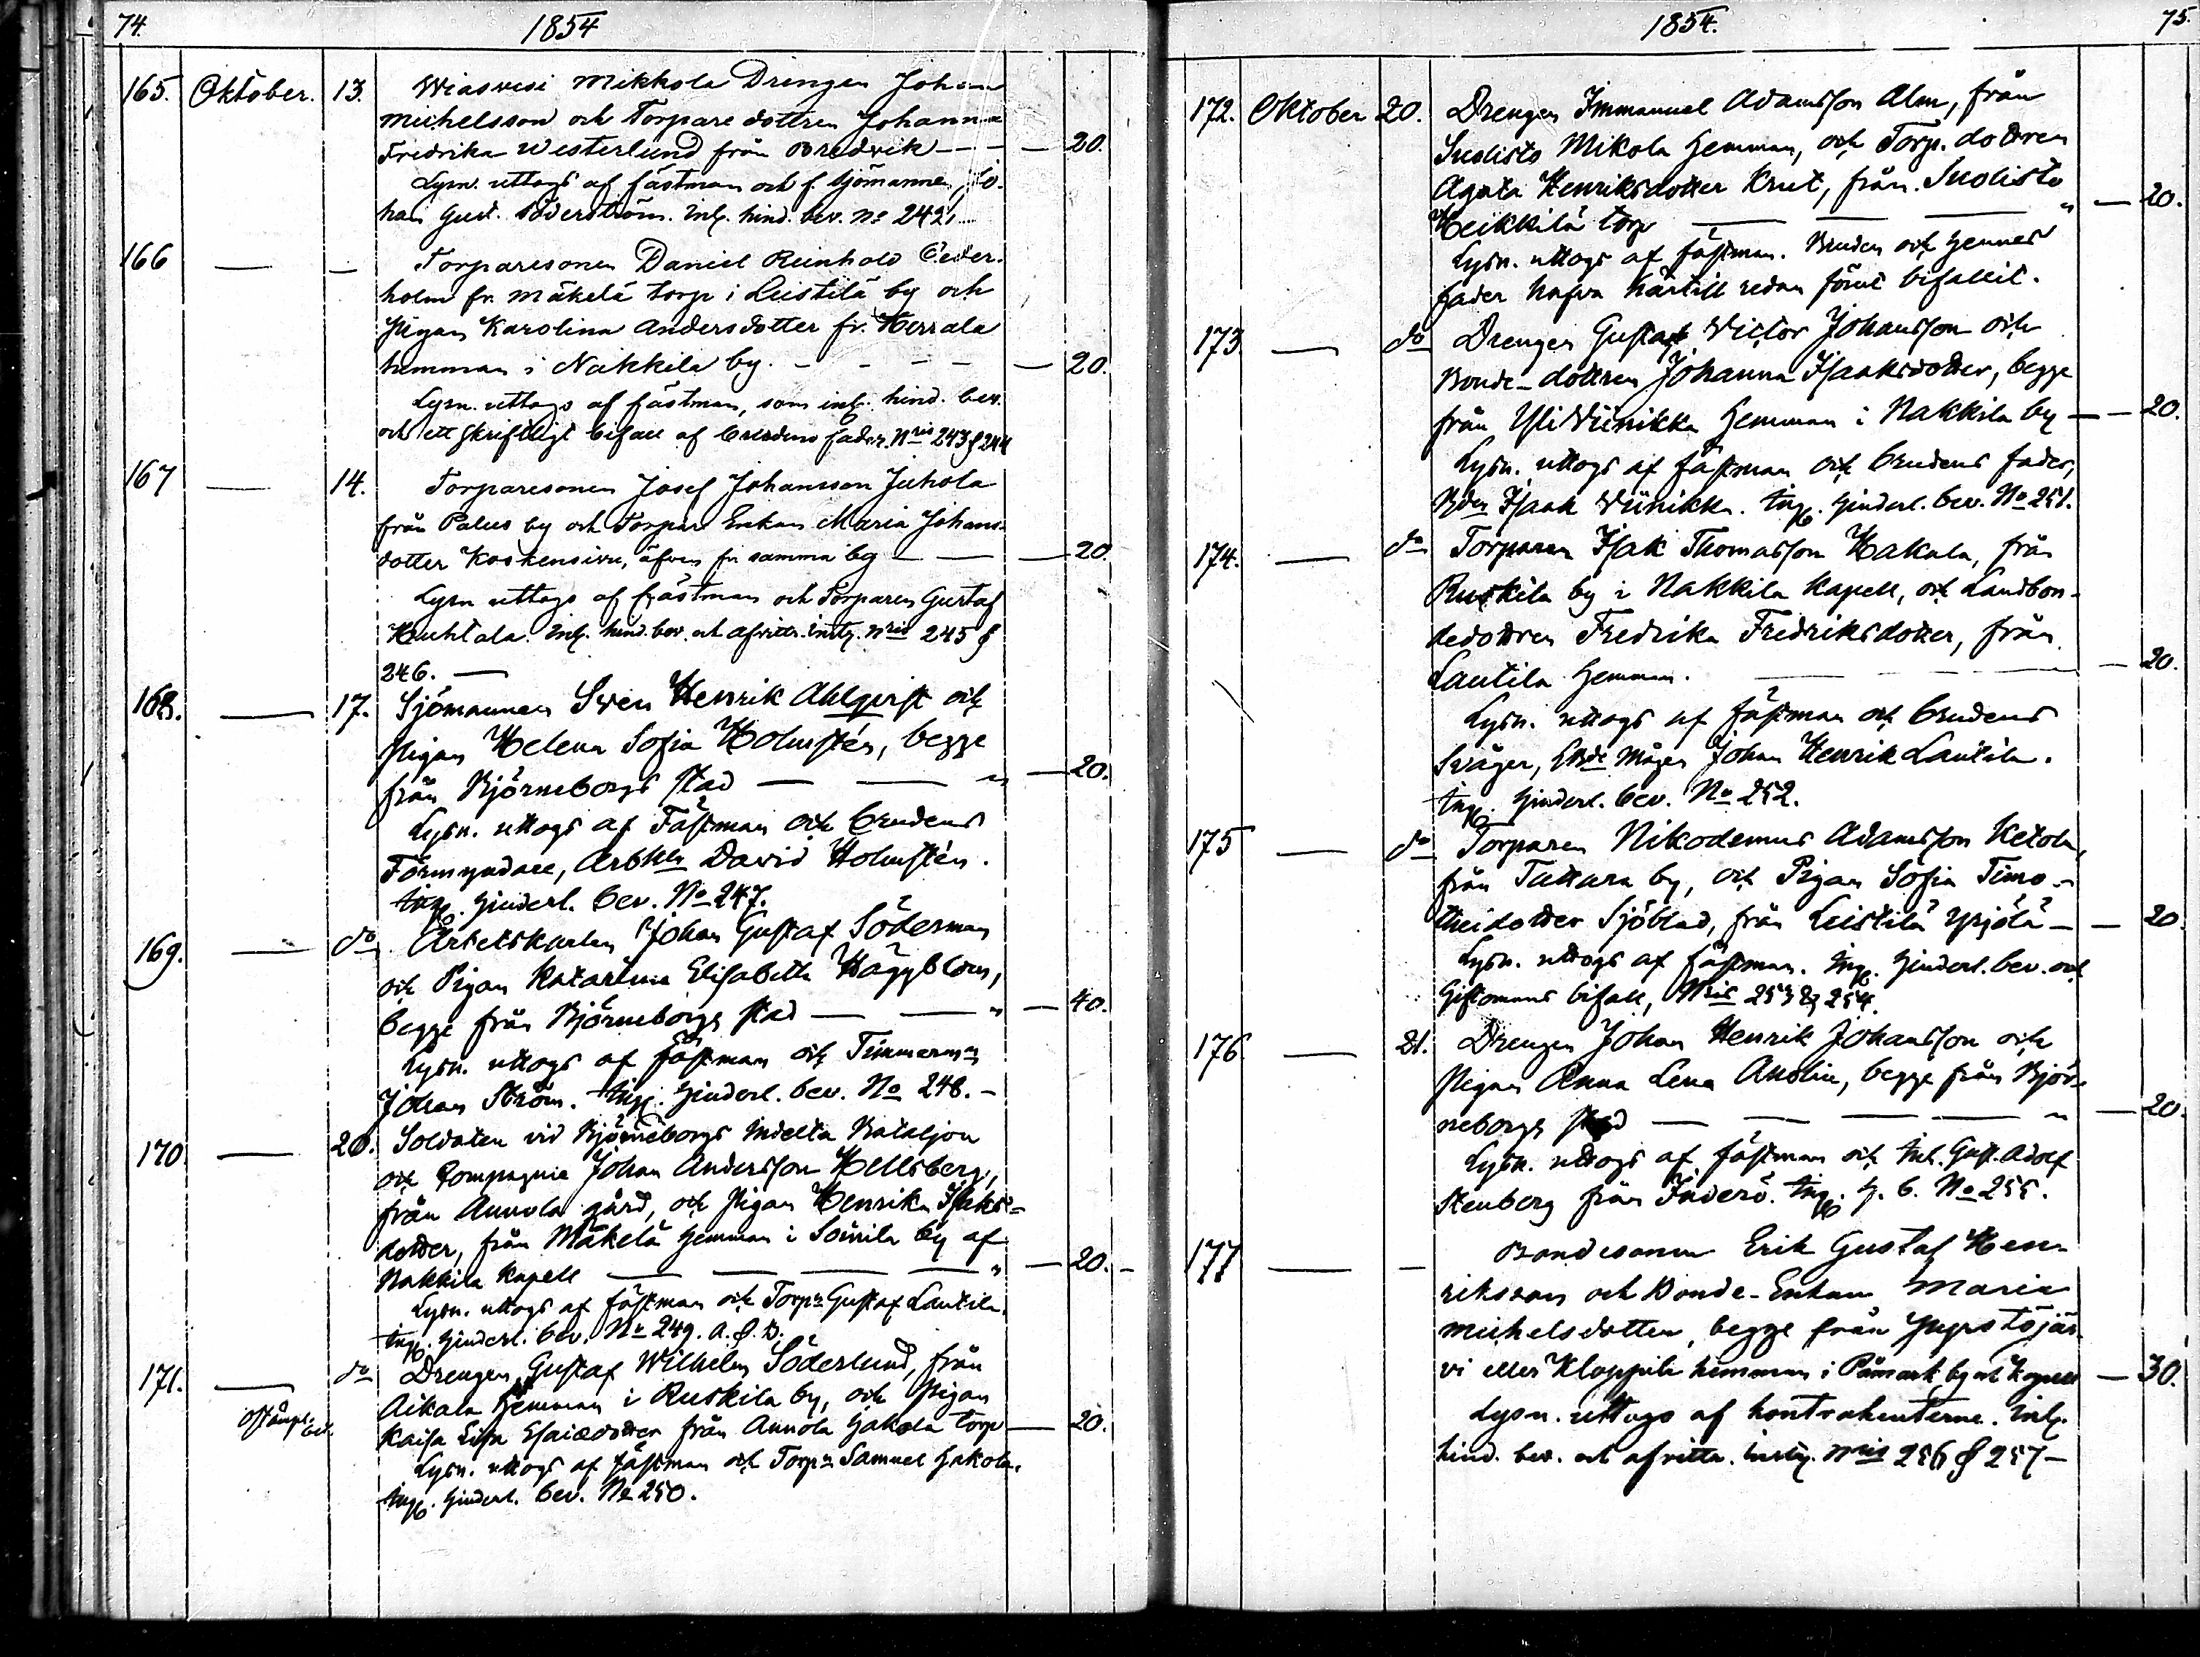 74.
1854
165. Oktober. 13. Wiasvesi Mikkola Drengen Johan
Michelsson och Torpare dottren Johanna
Fredrika Westerlund från Bredvik — — 20.
Lysn. uttogs af fästman och f. Sjömannen, Jo-
han Gust. Söderström. Inl. hind. bev. No 242.
166 — — Torparesonen Daniel Reinhold Ceder-
holm fr. Mäkelä torp i Leistilä by och
Pigan Karolina Andersdotter fr. Herrala
hemman i Nakkila by. — — 20.
Lysn. uttogs af fästman, som inl. hind. bev.
och ett skriftligt bifall af brudens fader. Nris 243 & 244
167 — 14. Torparesonen Josef Johansson Juhola
från Palus by och Torpare Enkan Maria Johans-
dotter Koskensivu, äfven fr. samma by — — 20.
Lysn uttogs af fästman och Torparen Gustaf
Huhtala. Inl. hind. bev. och afvittr. instr. Nris 245 &
246. —
168. — 17. Sjömannen Sven Henrik Ahlqvist och
Pigan Helena Sofia Holmstén, begge
från Björneborgs stad — — " — 20.
Lysn. uttogs af Fästman och brudens
Förmyndare, Arbkln David Holmstén.
Ing. hinderl. bev. No 247.
169. — do Arbetskarlen Johan Gustaf Söderman
och Pigan Katarina Elisabeth Häggblom,
begge från Björneborgs stad — — " — 40.
Lysn. uttogs af fästman och Timmerm:
Johan Ström. Ing. hinderl. bev. No 248. —
170 — 20. Soldaten vid Björneborgs Indelta Bataljon
och Compagnie Johan Andersson Hellsberg,
från Annola gård, och Pigan Henrika Isaks-
dotter, från Mäkelä hemman i Soinila by af
Nakkila Kapell — — — — " — 20. —
Lysn. uttogs af fästman och Torpn Gustaf Lautila.
Ing. hinderl. bev. No 249. A. & B.
171. — do Drengen Gustaf Wilhelm Söderlund, från
Aikala hemman i Ruskila by, och Pigan
Kaisa Lisa Esaiædotter från Annola Jakola torp — 20.
Lysn. uttogs af fästman och Torpn Samuel Jakola.
Ing. hinderl. bev. No 250.
75.
1854.
172. Oktober 20. Drengen Immanuel Adamsson Alm, från
Suolisto Mikola hemman, och Torp. dottren
Agata Henriksdotter Krut, från Suolisto
Heikkilä torp — — — " — 20.
Lysn. uttogs af fästman. Bruden och hennes
fader hafva härtill redan förut bifallit.
173 — do Drengen Gustaf Victor Johansson och
Bonde-dottren Johanna Isaaksdotter, begge
från Yli Viinikka hemman i Nakkila by — — 20.
Lysn. uttogs af fästman och brudens fader,
Bdn Isaak Viinikka. Ing. hinderl. bev. No 251.
174. — do Torparen Isak Thomasson Hakala, från
Ruskila by i Nakkila Kapell, och Landbon-
dedottren Fredrika Fredriksdotter, från
Lautila hemman. — — — 20.
Lysn. uttogs af fästman och brudens
Svåger, Måger Johan Henrik Lautila.
Ing. hinderl. bev. No 252.
175 — do Torparen Nikodemus Adamsson Ketola,
från Tattara by, och Pigan Sofia Timo-
theidotter Sjöblad, från Leistilä Yrjölä — — 20
Lysn. uttogs af fästman. Ing. hinderl. bev. och
Giftomans bifall, Nris 253 & 254.
176 — 21. Drengen Johan Henrik Johansson och
Pigan Anna Lena Anolin, begge från Björ-
neborgs stad — — — " — 20.
Lysn. uttogs af fästman och Inh. Gust. Adolf
Stenberg från Inderö. Ing. h. b. No 255.
177 — — Bondesonen Erik Gustaf Hen-
riksson och Bonde-Enkan Maria
Michelsdotter, begge från
vi eller Kloppila hemman i Påmark by och Kapell — 30.
Lysn. uttogs af kontrahenterne. Inl.
hind. bev. och afvittr. instr. Nris 256 & 257 —